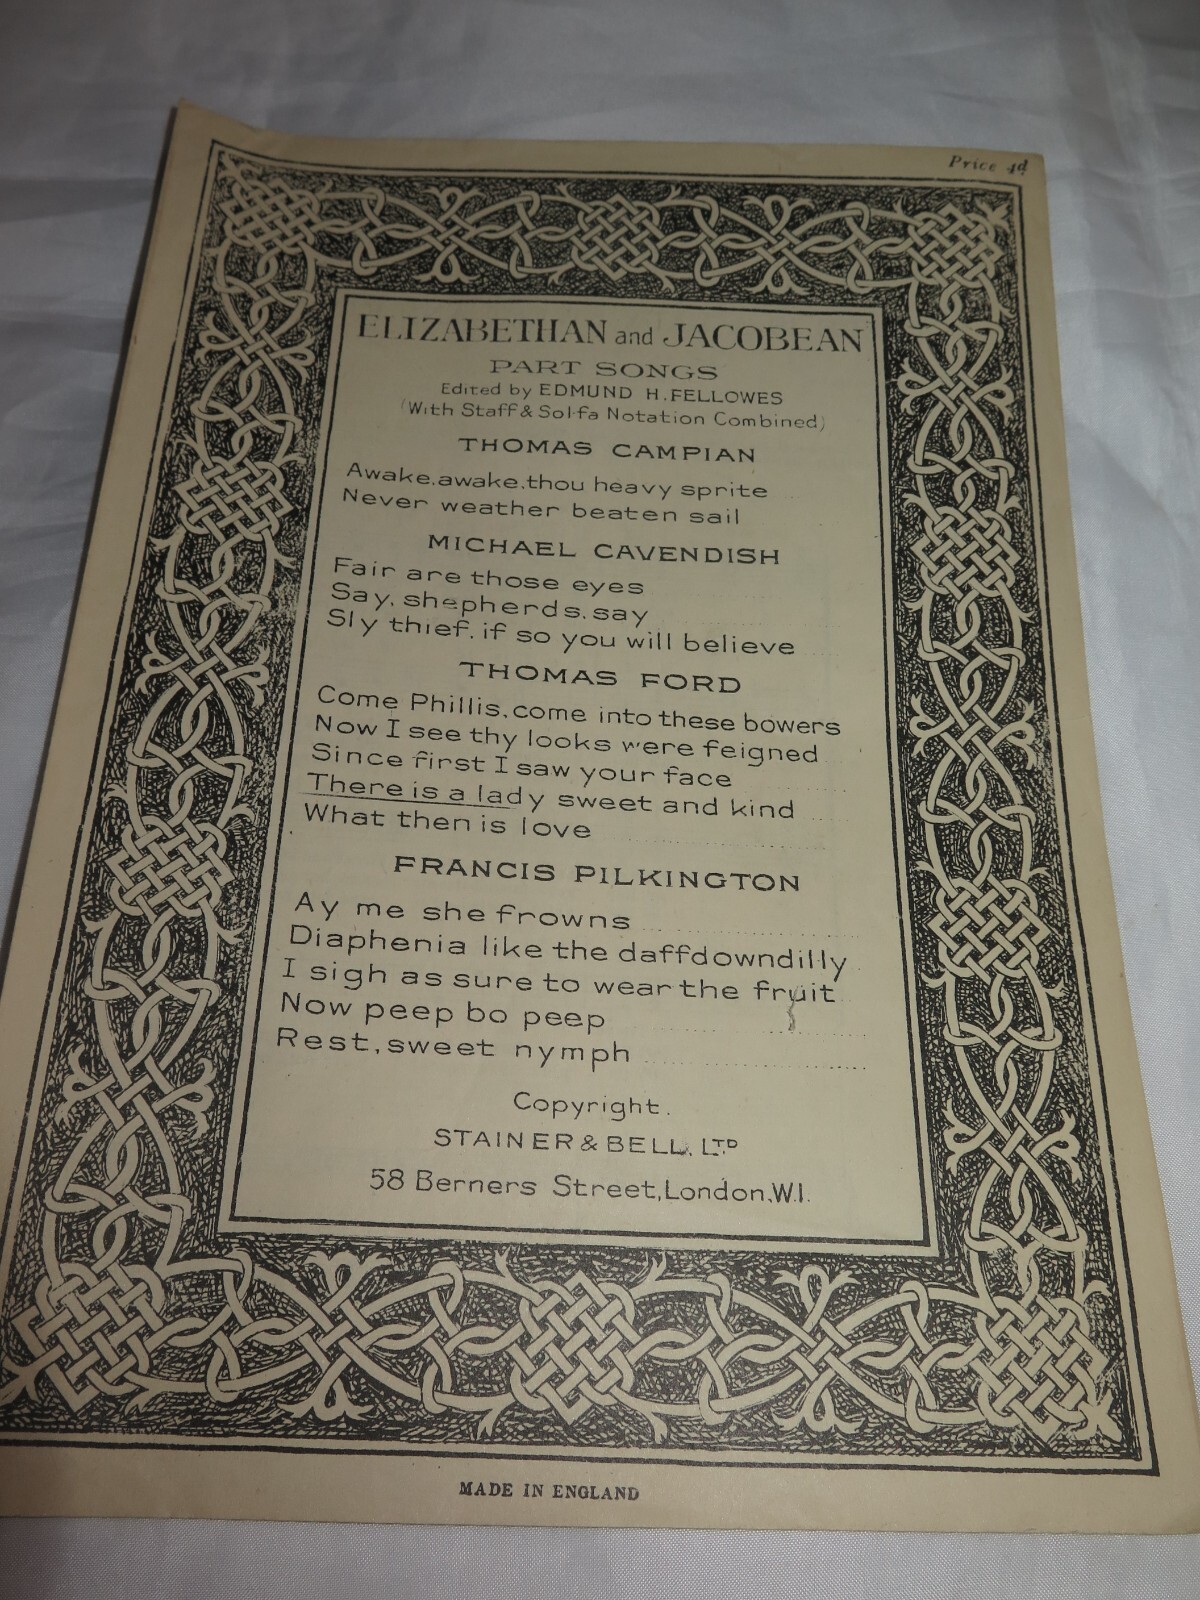 Price 4d
ELIZABETHAN and JACOBEAN
PART SONGS
Edited by EDMUND H. FELLOWES
(With Staff & Sol-fa Notation Combined)
THOMAS CAMPIAN
Awake, awake, thou heavy sprite
Never weather beaten sail
MICHAEL CAVENDISH
Fair are those eyes
Say, shepherds, say
Sly thief, if so you will believe
THOMAS FORD
Come Phillis, come into these bowers
Now I see thy looks were feigned
Since first I saw your face
There is a lady sweet and kind
What then is love
FRANCIS PILKINGTON
Ay me she frowns
Diaphenia like the daffdowndilly
I sigh as sure to wear the fruit
Now peep bo peep
Rest, sweet nymph
Copyright.
STAINER & BELL, LTD
58 Berners Street, London, W.1.
MADE IN ENGLAND